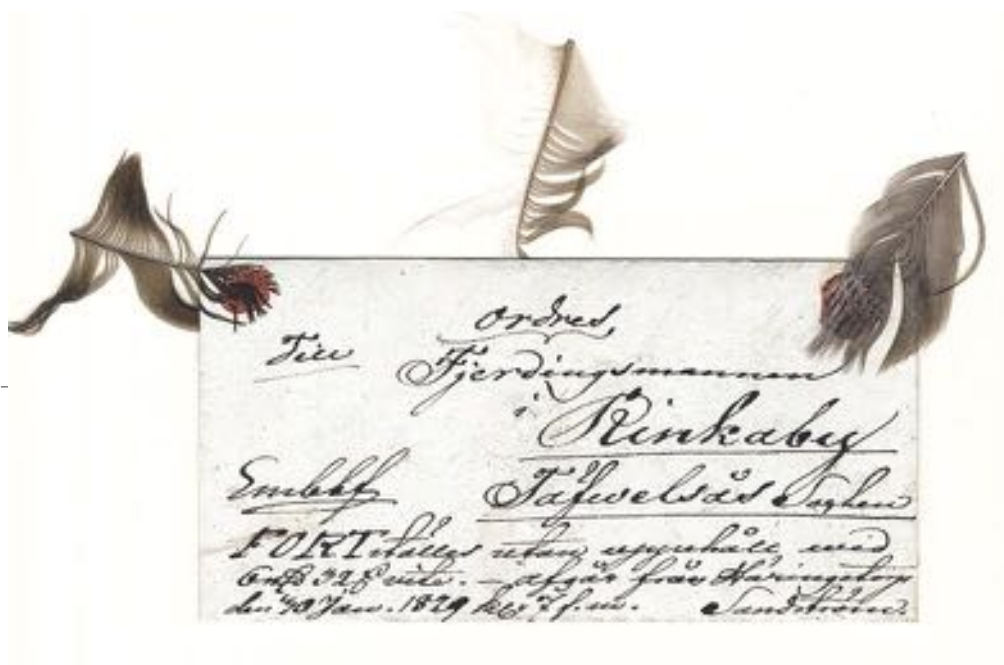 ordres,
Till
Fjerdingsmannen
i Rinkaby
Embbf Täfwelsås Soghen
FORTskålles utan uppehåll wid
32 § vite. – afgår från Haringetop
den 30 Jan. 1829 kl. 7 f.m. Sandstrom.